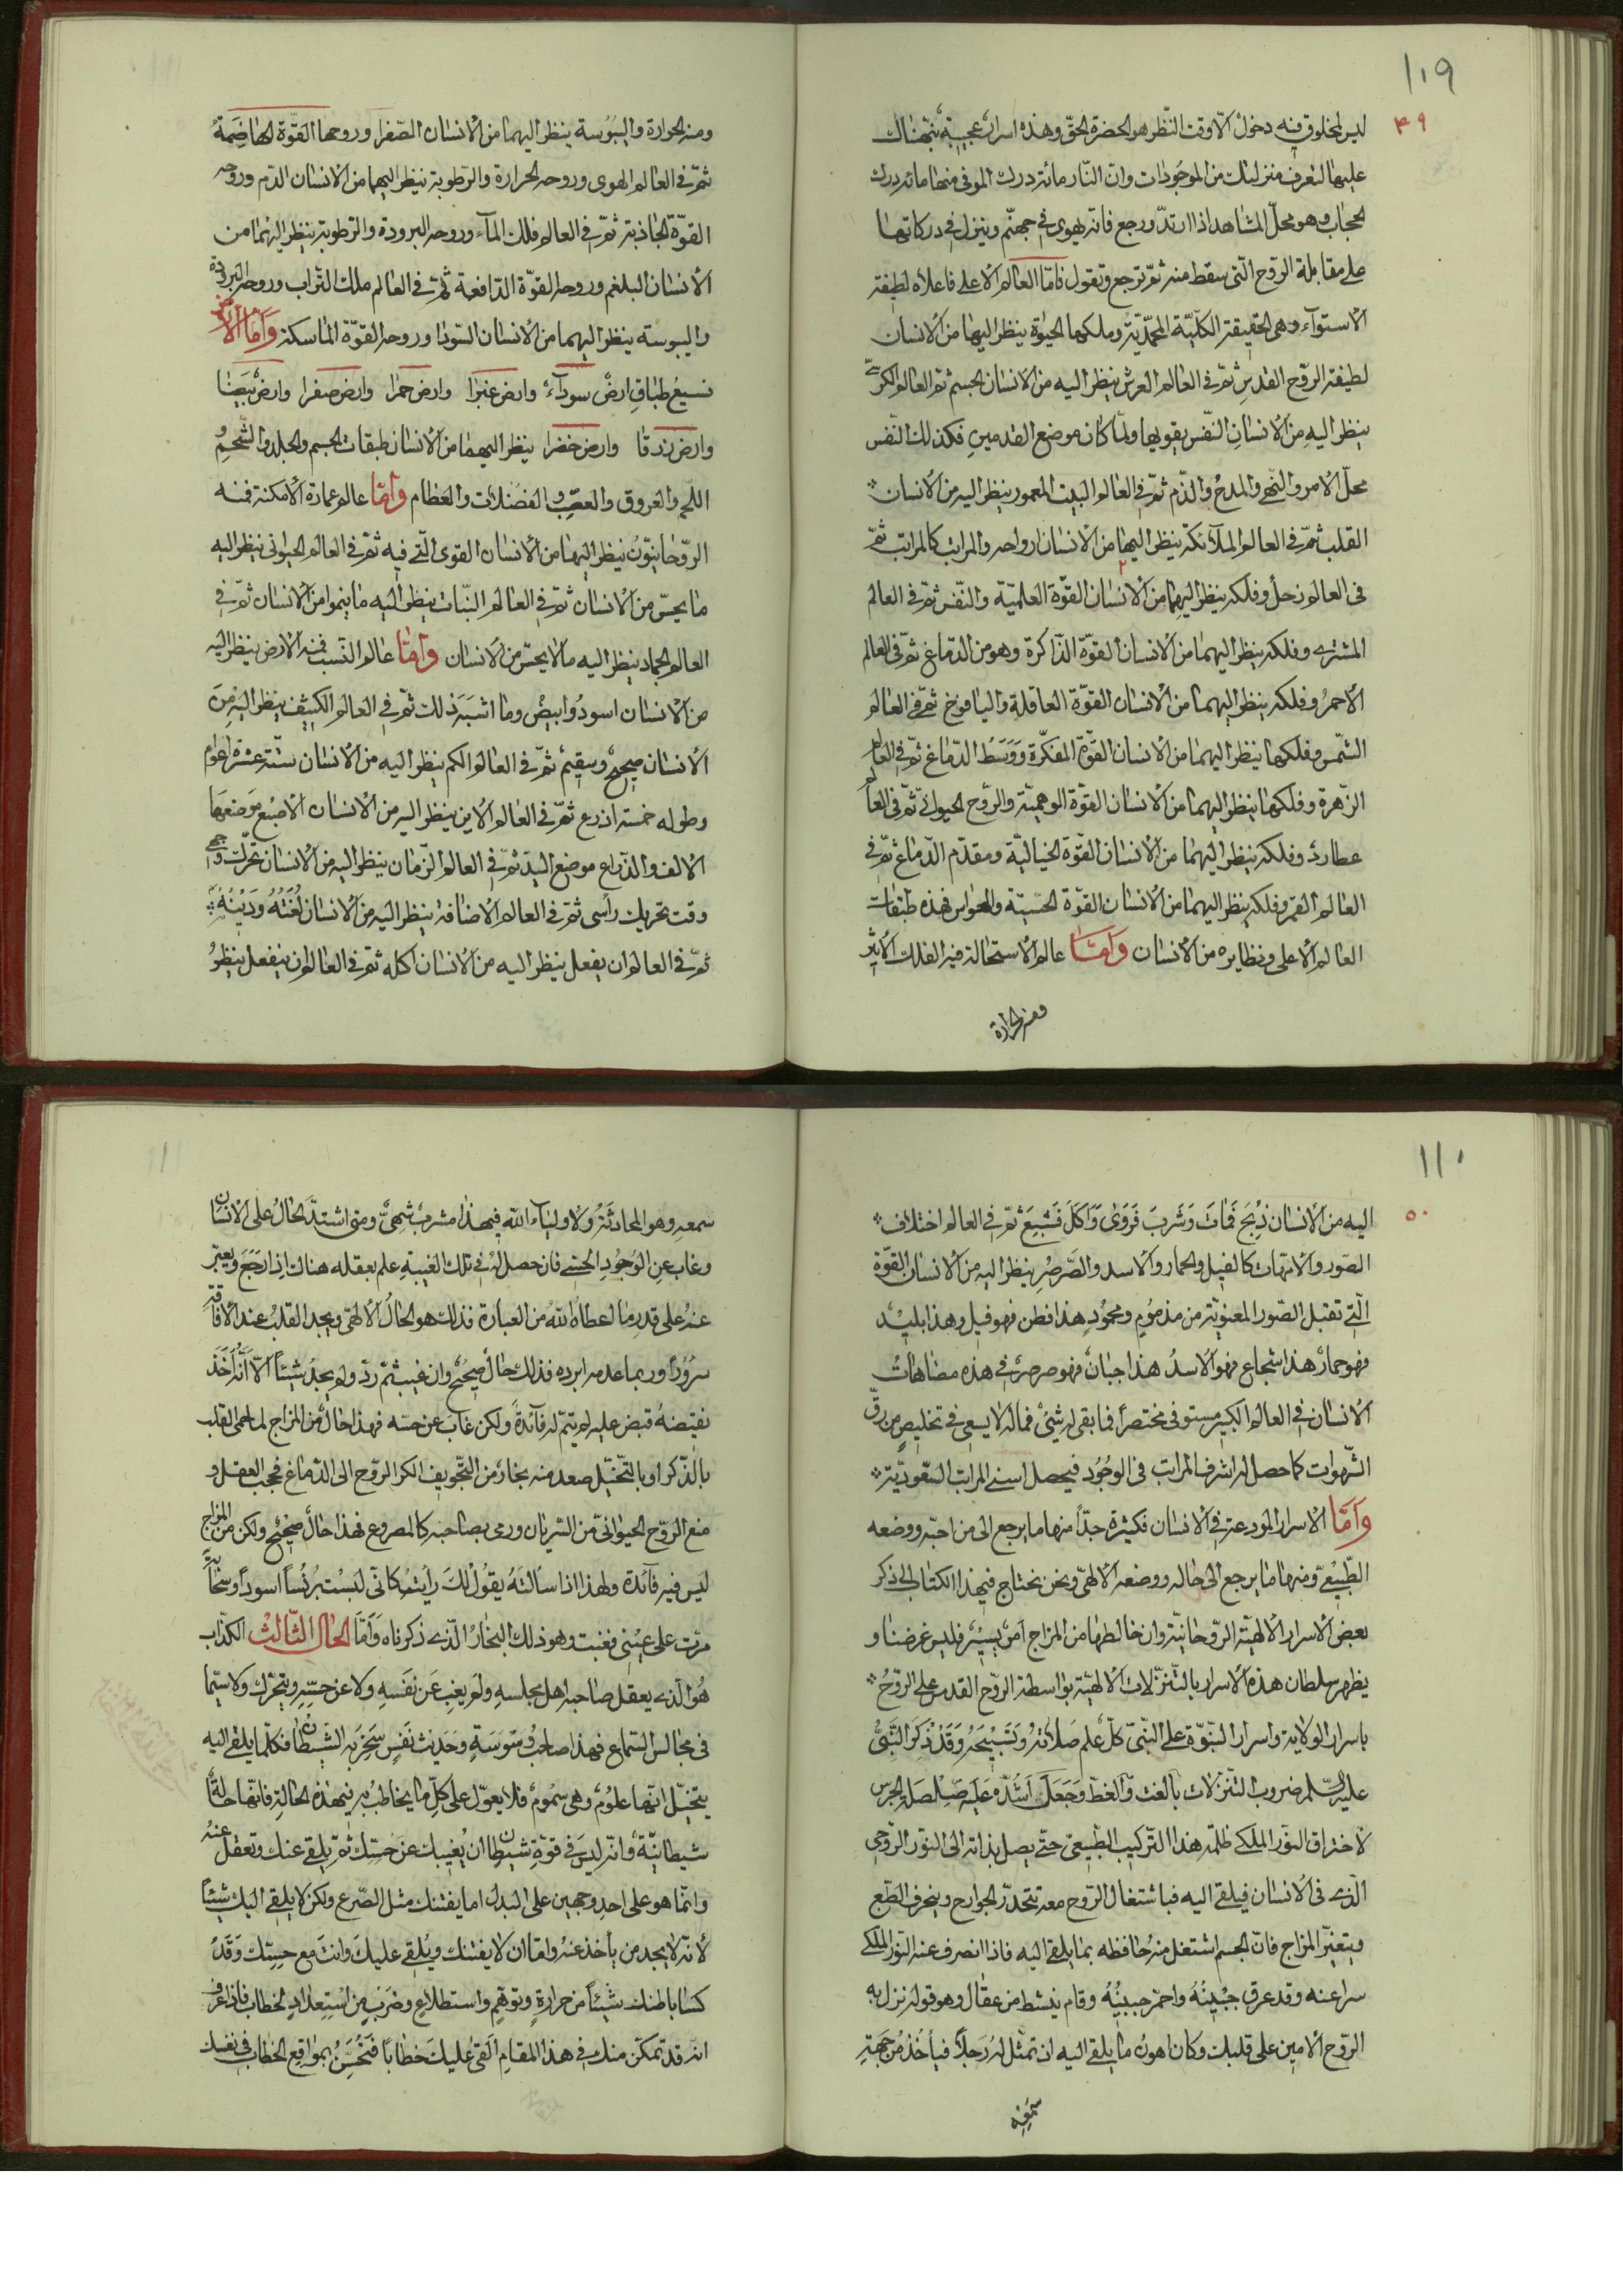 ١٠٩
٤٩
ليس لمخلوق فيه دخول الّا وقت النّظر هو الحضرة الحقّ وهذه اسرار عجيبة نبّهناك
عليها لتعرف منزلتك من الموجودات وانّ النّار مائة درك الموفى منها مائة درك
الحجاب وهو محلّ المشاهد اذا ارتدّ ورجع فانّه يهوى فى جهنّم وينزل فى دركاتها
على مقابلة الروح الّتى سقط منه ثمّ ترجع وتقول فامّا العالم الاعلى فاعلاه لطيفة
الاستوآء وهى الحقيقة الكلّيّة المحمّديّة وملكها الحيوة ينظر اليها من الانسان
لطيفة الروح القدسِ ثمّ فى العالم العرش ينظر اليه من الانسان الجسم ثمّ العالم الكرسىّ
ينظر اليهِ من الانسانِ النّفس بقويها ولمّا كان موضع القدمينِ فكذلك النّفس
محلّ الامر والنّهى والمدح والذّم ثمّ فى العالم البيت المعمور ينظر اليه من الانسان
القلب ثمّ فى العالم الملآئكة ينظر اليها من الانسان ارواحه والمراتب كالمراتب ثمّ
فى العالم زحل وفلكه ينظر اليهما من الانسان القوّة العلميّة والنّفس ثمّ فى العالم
المشترى وفلكه ينظر اليهما من الانسان القوّة الذّاكرة وهو من الدّماغ ثمّ فى العالم
الاحمرُ وفلكه ينظر اليهما من الانسان القوّة العاقلةِ واليافوخ ثمّ فى العالم
الشّمس وفلكها ينظر اليهما من الانسان القوّة المفكّرة ووَسَطُ الدّماغ ثمّ فى العالم
الزّهرة وفلكها ينظر اليهما من الانسان القوّة الوهميّة والرّوح الحيوانىّ ثمّ فى العالم
عطارد وفلكه ينظر اليهما من الانسان القوّة الخياليّة ومقدّم الدّماغ ثمّ فى
العالم القمر وفلكه ينظر اليهما من الانسان القوّة الحسّيّة والحواس فهذه طبقات
العالم الاعلى ونظايره من الانسان وَامّا عالم الاستحالة فمنه الفلك الاثير
ومنه الحرارة
ومنه الحرارة واليبوسة ينظر اليهما من الانسان الصّفرا وروحها القوّة الهاضِمةُ
ثمّ فى العالم الهوى وروحه الحرارة والرّطوبة ينظر اليهما من الانسان الدّم وروحه
القوّة الجاذبة ثمّ فى العالم فلك المآء وروحه البرودة والرّطوبة ينظر اليهما من
الانسان البلغم وروحه القوّة الدّافعة ثمّ فى العالم ملك التّراب وروحه البرودة
واليبوسة ينظر اليهما من الانسان السّودا وروحه القوّة الماسكة وَاَمّا الارض
فسبعُ طباقٍ ارضٌ سوداءُ وارض غبرا وارض حمرا وارض صفرا وارضٌ بيضا
وارض زرقا وارض خضرا ينظر اليهما من الانسان طبقات الجسم والجلد والشّحم و
اللّحم والعروق والعصب والفضلات والعظام وامّا عالم عمارة الامكنة فمنه
الرّوحانيّونُ ينظر اليهما من الانسان القوى الّتى فيه ثمّ فى العالم الحيوانى ينظر اليه
ما يحسّ من الانسان ثمّ فى العالم النّبات ينظر اليه ما ينموا من الانسان ثمّ فى
العالم الجماد ينظر اليه ما لا يحسّ من الانسان وامّا عالم النّسب فمنه الارض ينظر اليه
من الانسان اسودُ وابيضُ وما اشبَهَ ذلك ثمّ فى العالم الكثيف ينظر اليهِ مِنَ
الانسان صحيحٌ وسقيمٌ ثمّ فى العالم الكم ينظر اليه من الانسان ستّة عشرة اعوام
وطوله خمسة اذرع ثمّ فى العالم الاين ينظر اليه من الانسان الاصبَع مَوضعها
الالف والذّراع موضع اليد ثمّ فى العالم الزّمان ينظر اليه من الانسان تحرّك وجهى
وقت تحريك رأسى ثمّ فى العالم الاضافة ينظر اليه من الانسان لُغَتُهُ ودِينُهُ
ثمّ فى العالم ان يفعل ينظر اليه من الانسان اكله ثمّ فى العالم ان ينفعل ينظرُ
١١٠
٥٠
اليه من الانسان ذُبِحَ فَماتَ وَشَربَ فَرَوى وَاَكَلَ فَشَبِعَ ثمّ فى العالم اختلاف
الصّور والامّهات كالفيل والحمار والاسد والصّرصُرِ ينظر اليه من الانسان القوّة
الّتى تقبل الصّور المعنويّة من مذمُومٍ ومحمُودٍ هذا فطن فهو فيل وهذا بليْد
فهو حمارٌ هذا شجاع فهو الاسدُ هذا جبانٌ فهو صرصرٌ فى هذه مضاهاتُ
الانسان فى العالم الكبير مستوفى مختصراً فما بقى له شىءٌ فماله لا يسعى فى تخليصٍ من رقّ
الشّهوات كما حصل له اشرف المراتب فى الوجُودِ فيحصل اسنى المراتب السّعوديّة
وَاَمّا الاسرار المودعة فى الانسان فكثيرة جدّاً منها ما يرجع الى من احبّه ووضعه
الطّبيْعىّ ومنها ما يرجع الى حاله ووضعه الالهىّ ونحن نحتاج فى هذا الكتاب الى ذكر
بعض الاسرار الالهيّة الرّوحانيّة وان خالطها من المزاج امرٌ يسيرٌ فليس غرضنا و
يظهر سلطان هذه الاسرار بالتّنزّلات الالهيّة بواسطة الرّوح القدس على الرّوحُ
باسرار الولاية واسرار النّبوّة على النّبىّ كلّ علم صلاته وتَسْبيحَهُ وَقَدْ ذُكِرَ النَّبىُّ
عليه السّلم ضروب التّنزّلات بالغت والغطّ وَجَعَلَ اَشُدّه عَلَيه صَلصَلة الجرس
لاختراق النّور الملكى ظلمة هذا التّركيب الطّبيعىّ حتّى يصل بذاته الى النّور الرّوحى
الّذى فى الانسان فيلقى اليه فباشتغال الرّوح معه تتخدّر الجوارح وينحرف الطّبع
ويتغيّر المزاج فانّ الجسم اشتغل منهُ حافظه بما يلقى اليه فاذا انصرف عنه النّور الملكى
سرا عنه وقد عرق جَبْينُهُ واحمرّ جبينُهُ وقام ينشط من عقال وهو قوله نزل به
الرّوح الامين على قلبك وكان اهونُ ما يلقى اليه ان تمثّل لهُ رَجلاً فيأخُذُ مِن جهةِ
سَمْعِهِ
سمعهِ وهو المحادثةُ ولاولياءِ اللّه فى هذا مشربٌ شهىٌّ ومتى اشتدّ الحَالُ على الانسان
وغاب عنِ الوجُودِ الحسّى فان حصل لهُ فى تلك الغيبةِ علم يعقله هناك اِذا رَجَعَ ويعبّر
عنهُ على قدرِ ما اعطاهُ اللهُ من العبارة فذلك هو الحَالُ الالهىّ ويجد القلبُ عند الافاقة
سرُوراً وربما عدم ابرده فذلك حالٌ صَحيْحٌ وان غيب ثمّ ردّ ولم يجدُ شيئاً الّا اَنّهُ اَخَذَ
نفيضهُ قبض عليه لم يتمّ له فآئدةٌ ولكن غاب عن حسّه فهذا حالٌ من المزاج لما حمى القلب
بالذّكر او بالتّخيّل صعد منه بخارٌ من التّجويف الكر الرّوح الى الدّماغ فحجب العقل و
منع الرّوح الحيوانىّ من السّريان ورمى بصاحبه كالمصروع فهذا حالٌ صحيْحٌ ولكن من المزاج
ليس فيه فآئدة ولهذا اذا سألتَهُ يقولُ لكَ رأيتُ كأنّى لبستُ بُرنُساً اسوداً وسحابةً
مرّت على عيْنى فغبت وهو ذلك البخارُ الّذى ذكرناه وَاَمّا الحَالُ الثّالث الكذّاب
هُو الّذى يعقل صاحبه اهل مجلسهِ ولم يغب عن نفسهِ ولا عن حسّهِ ويتحرّك ولا سيّما
فى مجالس السّماع فهذا صاحبُ وَسْوَسَةٍ وحَديث نَفسٍ سَخِرَ به الشّيْطانُ فكلّما يلقى اليه
يتخيّل انّها علومٌ وهى سُمُومٌ فلا يعوّل على كلّ ما يخاطبُ به فى هذه الحالةِ فانّها حالةٌ
شيطانيّةٌ وانّه ليسَ فى قوّة شيطان ان يُغيبك عن حسّك ثمّ يلقى عنك وتعقل عنهُ
وانّما هو على احدِ وجهين على البدل امّا يفتنك مثل الصّرع ولكن لا يلقى اليك شيئاً
لانّه لا يجد من يأخذ عنهُ وامّا ان لا يفتنك ويُلقى عليكَ وانت مع حسّك وَقَدْ
كسا باطنك شيئاً من حرارةٍ وتوهّمٍ واستطلاعٍ وضربٍ من اسْتِعدَادٍ لخطابٍ فاذا عرف
انّه قد تمكّن منك فى هذا المقامِ اَلقى عليكَ خطاباً فتُحسُّ بمواقع الخطاب فى نفسك